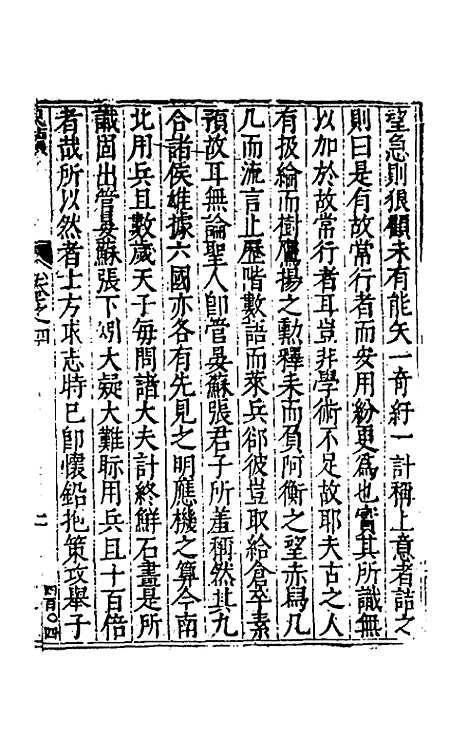 望急則狼顧未有能矢一奇紆一計稱上意者詰之
則曰是有故常行者而安用紛更為也實其所識無
以加於故常行者耳豈非學術不足故耶夫古之人
有扱綸而樹鷹揚之勳釋耒而負阿衡之望赤舄几
几而流言止歷階數語而萊兵郤彼豈取給倉卒素
預故耳無論聖人卽管晏蘇張君子所羞稱然其九
合諸侯雄據六國亦各有先見之明應機之算今南
北用兵且數歲天子每問諸大夫計終鮮石畫是所
識固出管晏蘇張下矧大疑大難眎用兵且十百倍
者哉所以然者士方求志時已卽懷鉛抱策攻舉子
卷之四
二
四百〇四